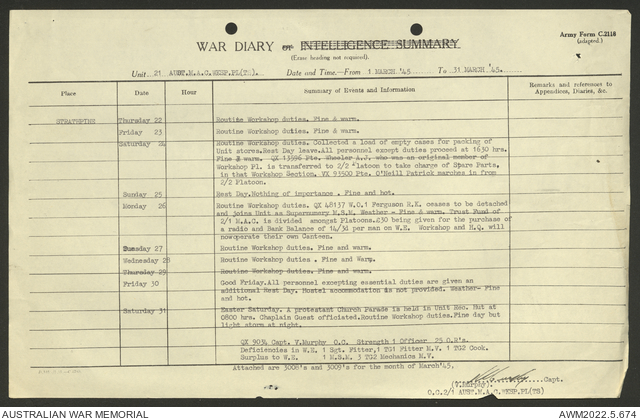 Army Form C.2118
(adapted.)
WAR DIARY or INTELLIGENCE SUMMARY.
(Erase heading not required).
Unit 21 AUST.M.A.C.WKSP.PL(TS). Date and Time.—From 1 MARCH '45 To 31 MARCH '45
Place Date Hour Summary of Events and Information Remarks and references to
Appendices, Diaries, &c.
STRATHPINE Thursday 22 Routine Workshop duties. Fine & warm.
Friday 23 Routine Workshop duties. Fine & warm.
Saturday 24 Routine Workshop duties. Collected a load of empty cases for packing of
Unit stores.Rest Day leave.All personnel except duties proceed at 1630 hrs.
Fine & warm. QX 13996 Pte. Wheeler A.J. who was an original member of
Workshop Pl. is transferred to 2/2 Platoon to take charge of Spare Parts,
in that Workshop Section. VX 93500 Pte. O'Neill Patrick marches in from
2/2 Platoon.
Sunday 25 Rest Day.Nothing of importance . Fine and hot.
Monday 26 Routine Workshop duties. QX 48137 W.O.1 Ferguson R.K. ceases to be detached
and joins Unit as Supernumery M.S.M. Weather - Fine & warm. Trust Fund of
2/1 M.A.C. is divided amongst Platoons.£30 being given for the purchase of
a radio and Bank Balance of 14/34 per man on W.E. Workshop and H.Q. will
nowoperate their own Canteen.
Tuesday 27 Routine Workshop duties. Fine and warm.
Wednesday 28 Routine Workshop duties . Fine and Warm.
Thursday 29 Routine Workshop duties. Fine and warm.
Friday 30 Good Friday.All personnel excepting essential duties are given an
additional Rest Day. Hostel accommodation is not provided. Weather- Fine
and hot.
Saturday 31 Easter Saturday. A protestant Church Parade is held in Unit Rec. Hut at
0800 hrs. Chaplain Guest officiated.Routine Workshop duties.Fine day but
light storm at night.
QX 9034 Capt. V.Murphy O.C. Strength 1 Officer 25 O.R's.
Deficiencies in W.E. 1 Sgt. Fitter,1 TG1 Fitter M.V. 1 TG2 Cook.
Surplus to W.E. 1 M.S.M. 3 TG2 Mechanics M.V.
Attached are 3008's and 3009's for the month of March'45.
(V.Murphy) Capt.
O.C.2/1 AUST.M.A.C.WKSP.PL(TS)
AUSTRALIAN WAR MEMORIAL AWM2022.5.674